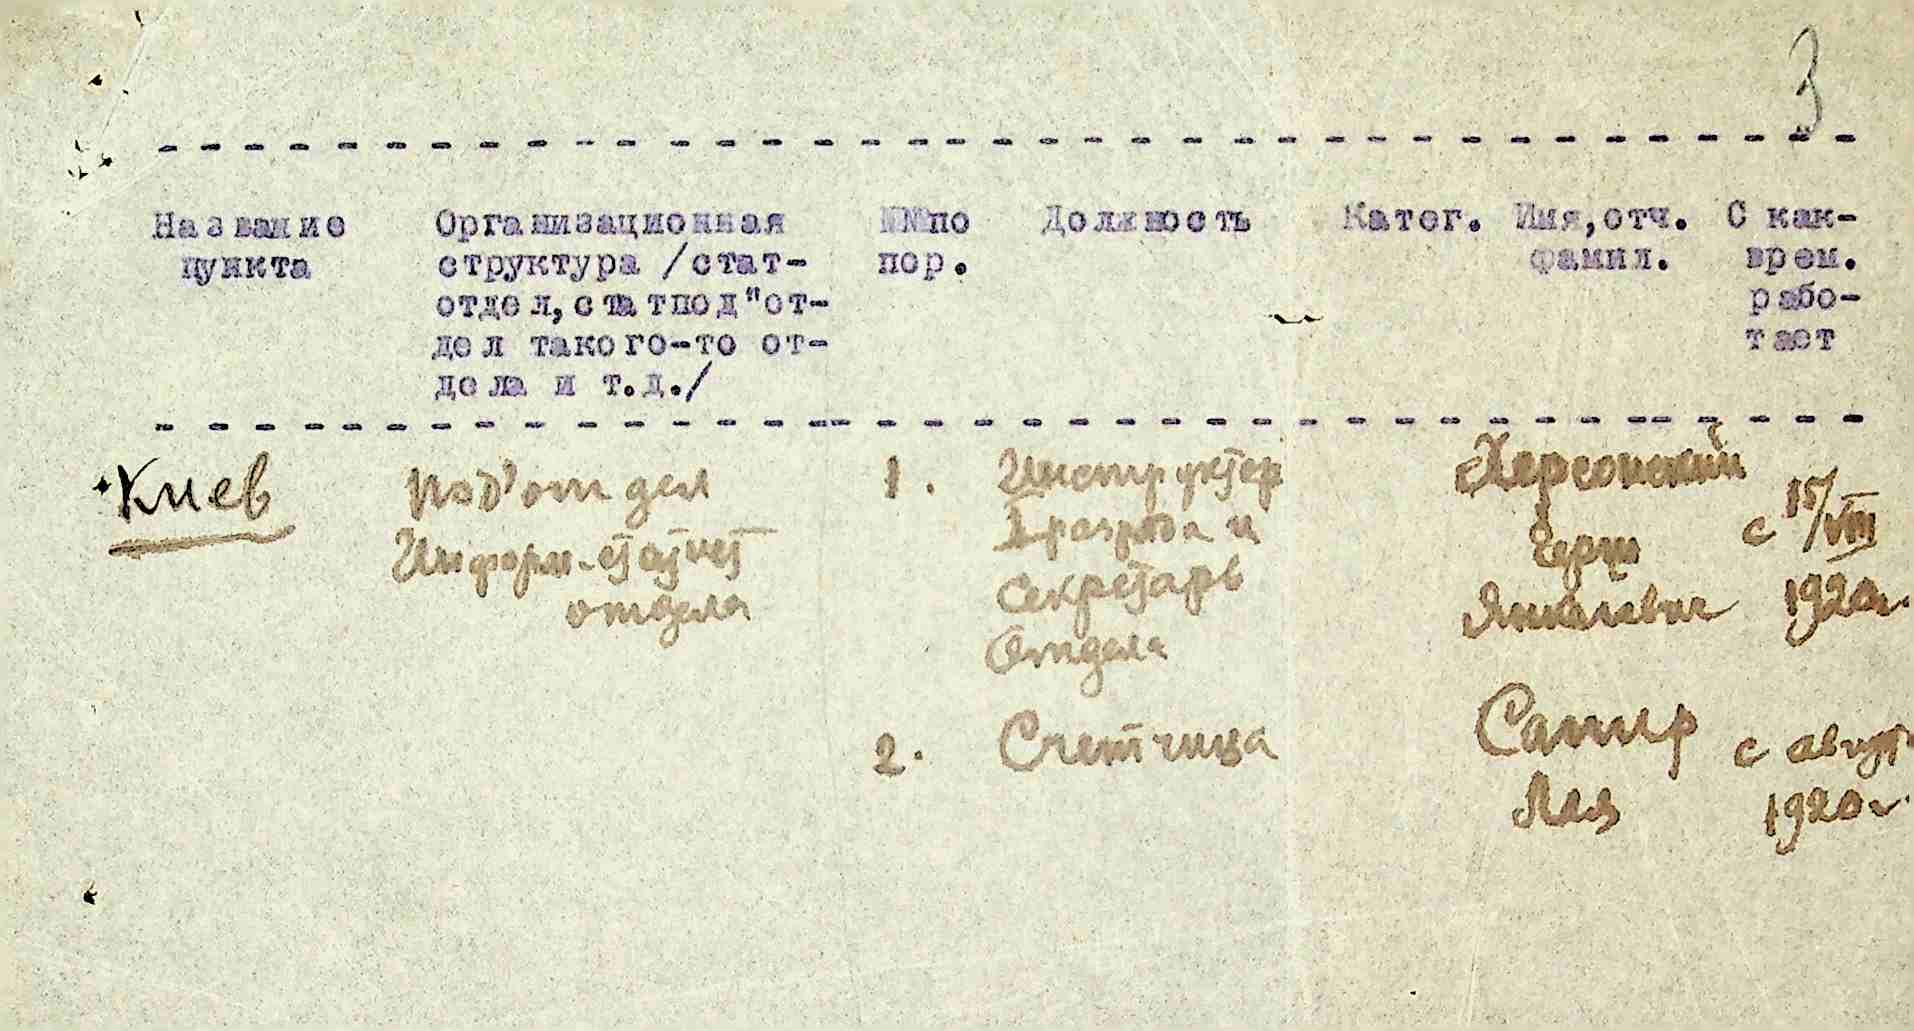 3
Название пункта
Организационная структура /стат-
отдел, статпод"от-
дел такого-то от-
дела и т.д./
№№по пор.
Должность
Катег.
Имя,отч. фамил.
С как-
врем.
рабо-
тает
Киев
Под'отдел
Информ.-статист
отдела
1.
Инструктор
I разряда и
Секретарь
Отдела
Херсонский
Герц
Янкелевич
с 15/VIII
1920г.
2.
Счетчица
Сапир
Лея
с август
1920г.